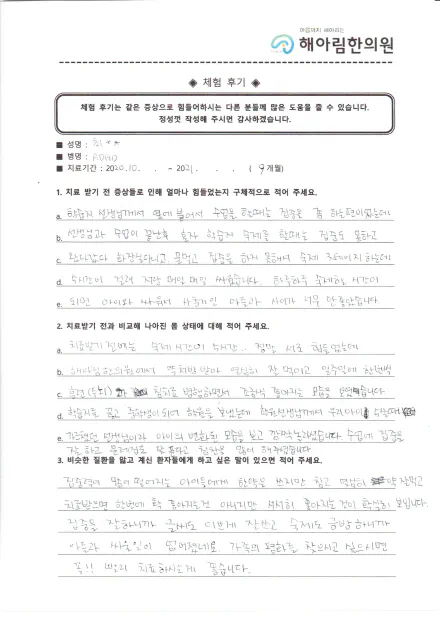 마음까지 헤아리는
해아림한의원
◈ 체험 후기 ◈
체험 후기는 같은 증상으로 힘들어하시는 다른 분들께 많은 도움을 줄 수 있습니다.
정성껏 작성해 주시면 감사하겠습니다.
■ 성명 : 최**
■ 병명 : ADHD
■ 치료기간 : 2020.10. . - 2021. . . ( 9 개월)
1. 치료 받기 전 증상들로 인해 얼마나 힘들었는지 구체적으로 적어 주세요.
a. 학습지 선생님께서 옆에 붙어서 수업을 할때는 집중을 좀 하는편이었는데
b. 선생님과 수업이 끝난후 혼자 학습지 숙제를 할때는 집중도 못하고
c. 왔다갔다 화장실다니고 물먹고 집중을 하지 못해서 숙제 하는데
d. 수시간이 걸려 저랑 매일 매일 싸웠습니다. 하루하루 숙제하는 시간이
e. 되면 아이와 싸워서 사춘기인 아들과 사이가 너무 안좋았습니다
2. 치료받기 전과 비교해 나아진 몸 상태에 대해 적어 주세요.
a. 치료받기 전에는 숙제시간이 수시간.. 정말 서로 힘들었는데
b. 해아림한의원에서 약처방 받아 열심히 잘 먹이고 일주일에 한번씩
c. 침치료 병행하면서 조금씩 좋아지는 모습을 보였습니다
d. 학습지도 끊고 중학생이 되어 학원을 보냈는데 학원선생님께서 우리아이 수학
e. 가르쳤던 선생님이라 아이의 변화된 모습을 보고 깜짝 놀라셨습니다 수업에 집중을
잘 하고 문제집도 잘 푼다고 칭찬을 많이 해주셨습니다
3. 비슷한 질환을 앓고 계신 환자들에게 하고 싶은 말이 있으면 적어 주세요.
집중력이 많이 떨어지는 아이들에게 한약을 쓰지만 믿고 열심히 약 잘먹고
치료받으면 한번에 확 좋아지는건 아니지만 서서히 좋아지는 것이 확실히 보입니다.
집중을 잘하니까 글씨도 이쁘게 잘쓰고 숙제도 금방하니까
아들과 싸울일이 없어졌네요. 가족의 평화를 찾으시고 싶으시면
꼭!! 빨리 치료하시는게 좋습니다.